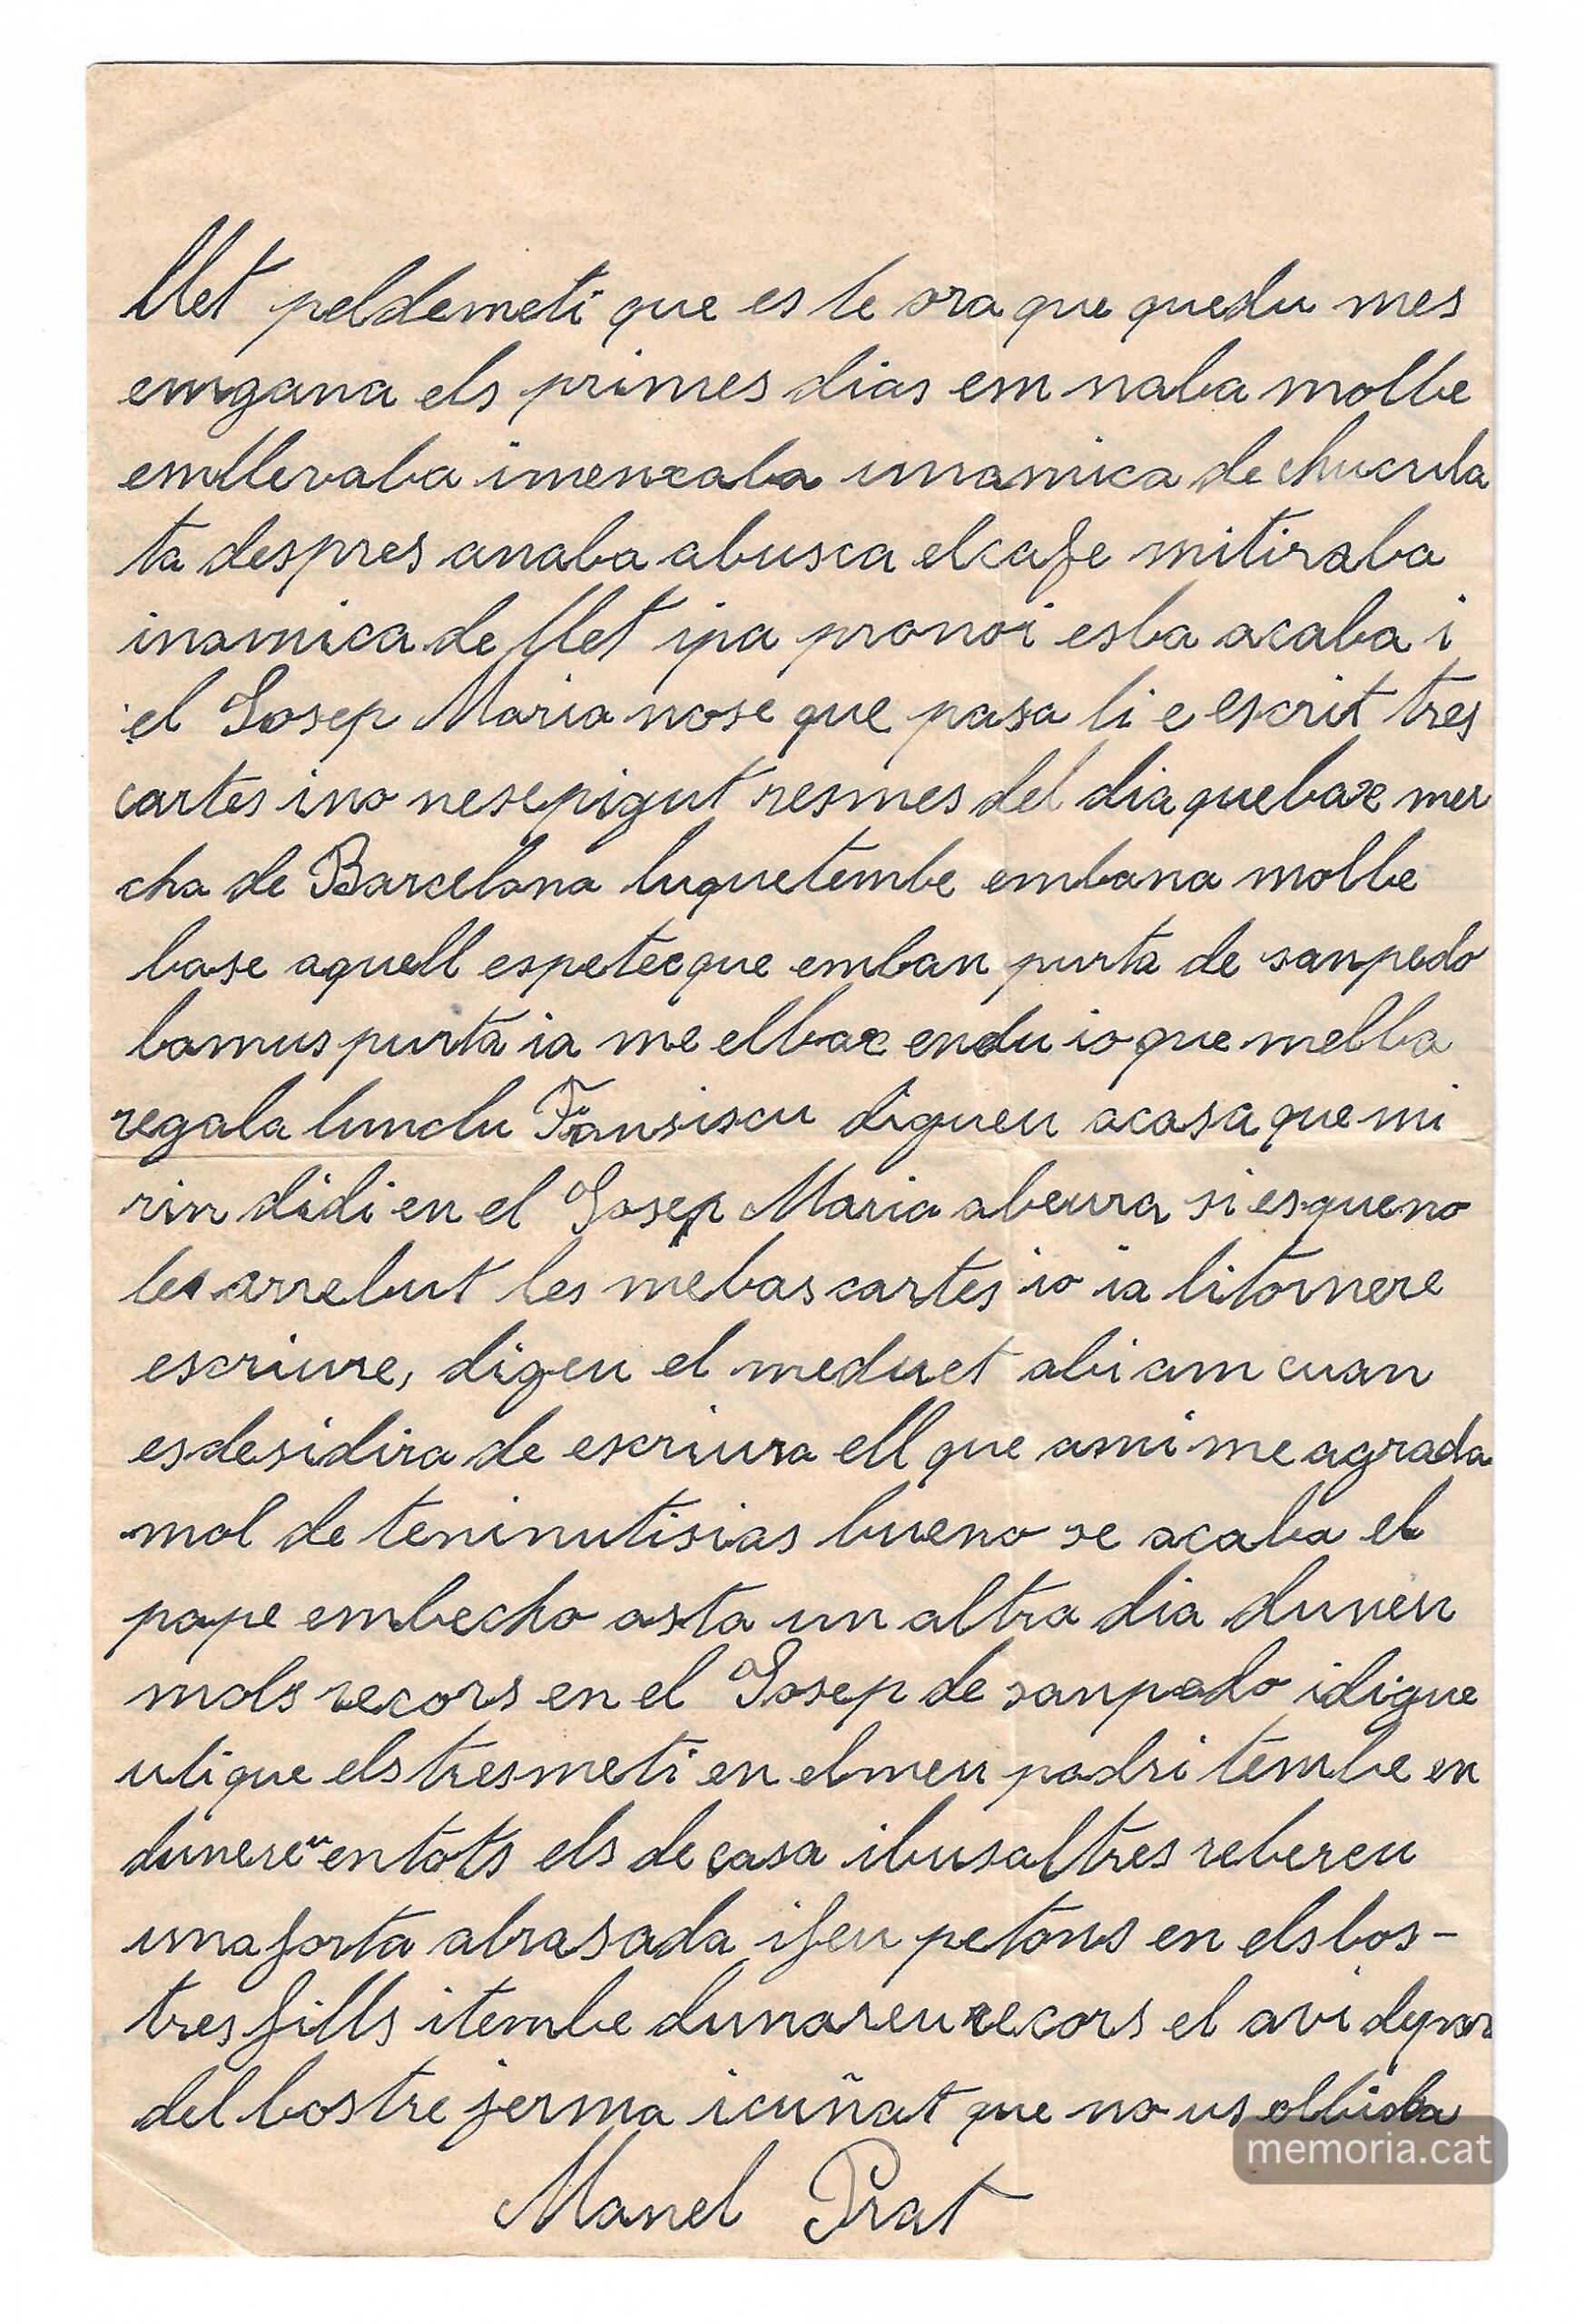 llet peldemeti que es le ora que quedu mes
emgana els primes dias em naba molbe
emllevaba imenxaba unamica de chucula
ta despres anaba abusca elcafe mitiraba
inamica de llet ija pronoi esba acaba i
el Josep Maria nose que pasa li e escrit tres
cartes ino nesepigut resmes del dia quebax mer
cha de Barcelona luquetembe embana molbe
base aquell espetec que emban purta de sanpedo
bamus purta ia me elbax endu io que melba
regala lunclu Fransiscu digueu acasa que mi
rin didi en el Josep Maria abeura si esqueno
les arrebut les mebas cartes io ia litornere
escriure, digeu el meduet abiam cuan
esdesidira de escriura ell que ami me agrada
mol de teninutisias bueno se acaba el
pape embecho asta un altra dia duneu
mols recors en el Josep de sanpedo idigue
uli que elstresmeti en elmeu padri tembe en
dunereu entots els de casa ibusaltres rebereu
una forta abrasada ifeu petons en elsbos-
tres fills itembe dunareu recors el avi
del bostre jerma icuñat que no us olbida
Manel Prat
memoria.cat